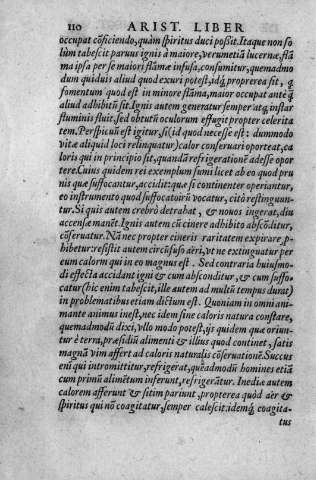 110 ARIST. LIBER
occupat cõficiendo, quàm ſpiritus duci poßit. Itaque non ſo
lùm tabeſcit paruus ignis à maiore, verumetiã lucernæ, flã
ma ipſa per ſe maiori flãmæ infuſa, conſumitur, quemadmo
dum quiduis aliud quod exuri poteſt, idq́; proptereà ſit, q
fomentum quod eſt in minore flãma, maior occupat ante q̃
aliud adhibitũ ſit. Ignis autem generatur ſemper atq; inſtar
fluminis fluit, ſed obtutũ oculorum effugit propter celerita
tem. Perſpicuũ eſt igitur, ſi (id quod neceſſe eſt: dummodo
vitæ aliquid loci relinquatur) calor conſeruari oporteat, ca
loris qui in principio ſit, quandã refrigerationẽ adeſſe opor
tere. Cuius quidem rei exemplum ſumi licet ab eo quod pru
nis quæ ſuffocantur, accidit: quæ ſi continenter operiantur,
eo inſtrumento quod ſuffocatoriũ vocatur, citò reſtinguun-
tur. Si quis autem crebrò detrahat, & nouos ingerat, diu
accenſæ manẽt. Ignis autem cũ cinere adhibito abſcõditur,
cõſeruatur. Nã nec propter cineris raritatem expirare, p-
hibetur: reſiſtit autem circũfuſo aëri, vt ne extinguatur per
eum calorm qui in eo magnus eſt. Sed contraria huiuſmo-
di effectA accidant igni & cum abſconditur, & cum ſuffo-
catur (hic enim tabeſcit, ille autem ad multũ tempus durat)
in problematibus etiam dictum eſt. Quoniam in omni ani-
mante animus ineſt, nec idem ſine caloris natura conſtare,
quemadmodũ dixi, vllo modo poteſt, ijs quidem quæ oriun-
tur è terra, præſidiũ alimenti & illius quod continet, ſatis
magnã vim affert ad caloris naturalis cõſeruationẽ. Succus
eni qui intromittitur, refrigerat, quẽadmodũ homines etiã
cum primũ alimẽtum inferunt, refrigerãtur. Inediæ autem
calorem afferunt & ſitim pariunt, propterea quòd aër &
ſpiritus qui nõ coagitatur, ſemper caleſcit, idemq́; coagita-
tus